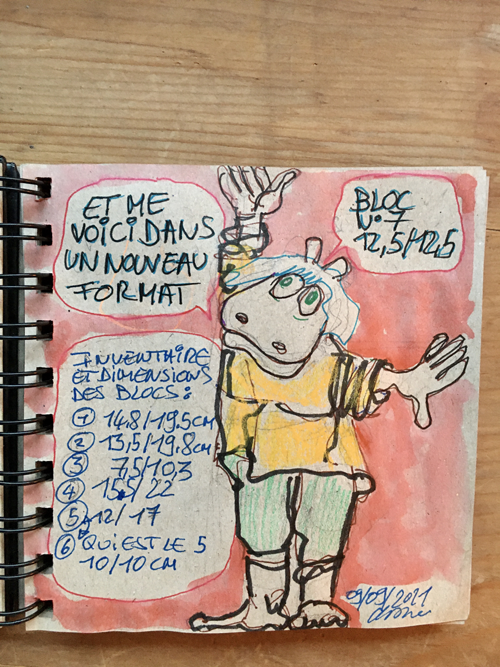 ET ME
VOICI DANS
UN NOUVEAU
FORMAT
BLOC
12,5/12,5
INVENTAIRE
ET DIMENSIONS
DES BLOCS:
1 14,8/19.5CM
2 13,5/19,8CM
3 7,5/10,3
4 15,5/22
5 12/17
6 QUI EST LE 5
10/10 CM
09/09/2021